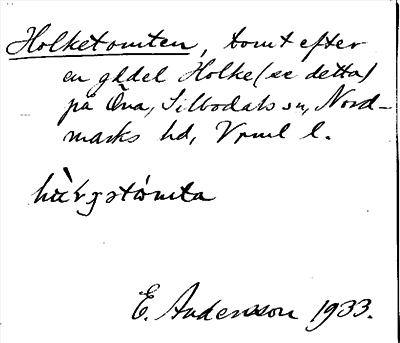 Holketomten, tomt efter
en gkdel Holke (se detta)
på Öna, Silbodals sn, Nord-
marks hd, Vrml l.
E. Andersson 1933.